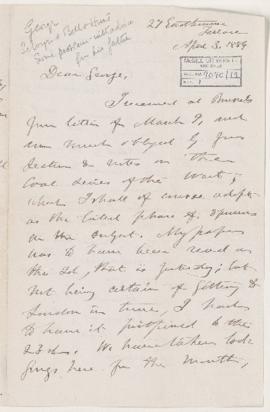 George
27 Eastbourne
Terrace
April 3, 1889
for his father
Dear George,
I received at Brussels
your letter of March 7, and
am much obliged by your
section & notes on the
Coal series of the West,
which I shall of course adopt
as the latest phase of opinion
on the subject. My paper
was to have been read on
the 2d, that is yesterday; but
not being certain of getting to
London in time, I had
to have it postponed to the
23d. We have taken lod-
gings here for the month,